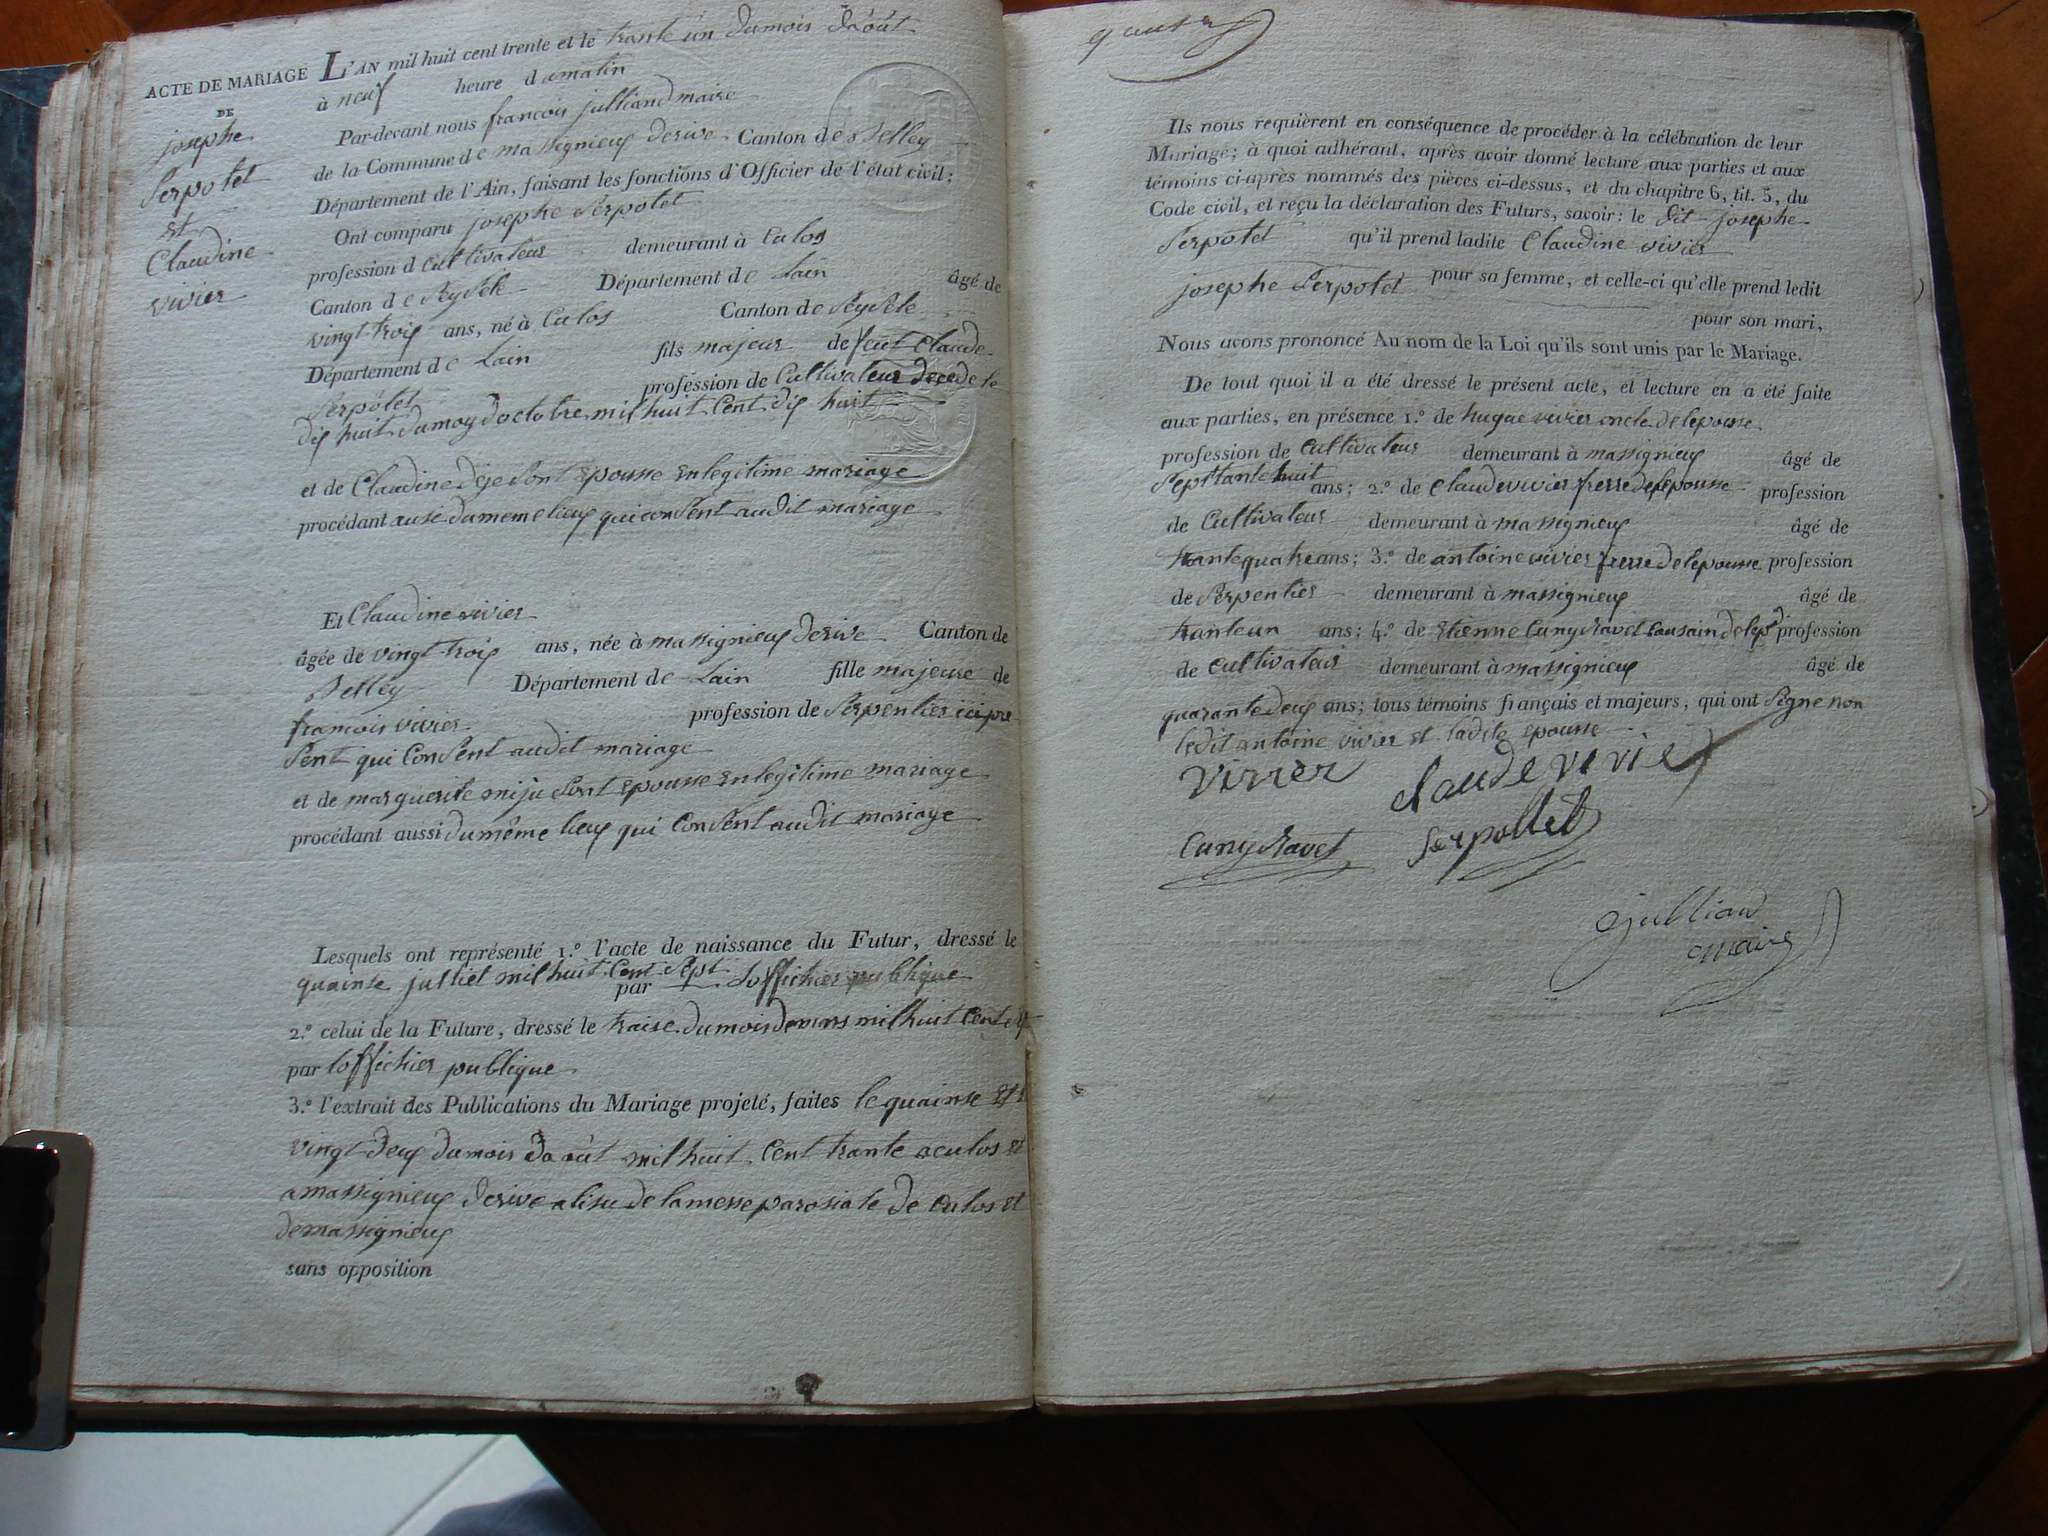 ACTE DE MARIAGE
DE
josephe
Serpolet
Et
Claudine
vivier
L'AN mil huit cent trente et le trante un dumois daoût
à neuf heure damatin
Par-devant nous francois julliand maire
de la Commune de massignieux derive Canton de Belley
Département de l'Ain, faisant les fonctions d'Officier de l'état civil;
Ont comparu josephe Serpolet
profession d cultivateur demeurant à Culos
Canton de Seysele Département de Lain âgé de
vingt trois ans, né à Culos Canton de Seysele
Département de Lain fils majeur de feut Claude
Serpolet profession de Cultivateur decede le
dix huit dumoy doctobre mil huit Cent dix huit
et de Claudine deje Sont Epousse En legitime mariage
procédant ausi dumeme lieux qui conSent audit mariage
Et Claudine vivier
âgée de vingt trois ans, née à massignieux derive Canton de
Belley Département de Lain fille majeure de
francois vivier profession de Serpentier ici pre
Sent qui ConSent audit mariage
et de marguerite miju Sont Epousse En legitime mariage
procédant aussi dumême lieux qui ConSent audit mariage
Lesquels ont représenté 1.º l'acte de naissance du Futur, dressé le
quainse julliet mil huit Cent Sept
par Loffichier publique
2.º celui de la Future, dressé le traise dumois demars mil huit Cent
par loffichier publique
3.º l'extrait des Publications du Mariage projeté, faites le quainse Et
vingt deux dumois daoût mil huit Cent trante a culos Et
a massignieux derive a lisu de lamesse parosiale de Culos Et
demassignieux
sans opposition
Ils nous requièrent en conséquence de procéder à la célébration de leur
Mariage; à quoi adhérant, après avoir donné lecture aux parties et aux
témoins ci-après nommés des pièces ci-dessus, et du chapitre 6, tit. 5, du
Code civil, et reçu la déclaration des Futurs, savoir: le dit josephe
Serpolet qu'il prend ladite Claudine vivier
pour sa femme, et celle-ci qu'elle prend ledit
josephe Serpolet
pour son mari,
Nous avons prononcé Au nom de la Loi qu'ils sont unis par le Mariage.
De tout quoi il a été dressé le présent acte, et lecture en a été faite
aux parties, en présence 1.º de hugue vivier oncle de lepousse
profession de Cultivateur demeurant à massignieux âgé de
Septtante huit ans; 2.º de Claude vivier frerre delepousse profession
de Cultivateur demeurant à massignieux âgé de
trante quatre ans; 3.º de antoine vivier frerre de lepousse profession
de Serpentier demeurant à massignieux âgé de
trante un ans; 4.º de Etienne Cuny Ravet Cousain de lepse profession
de Cultivateur demeurant à massignieux âgé de
quarante deux ans; tous témoins français et majeurs, qui ont Signe non
ledit antoine vivier Et ladite epousse
Vivier claude vivier
Cuny Ravet Serpollet
julliand
maire